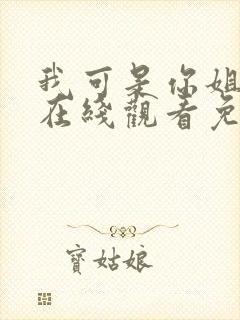 我可是你姐
在綫觀看免
寶姑娘